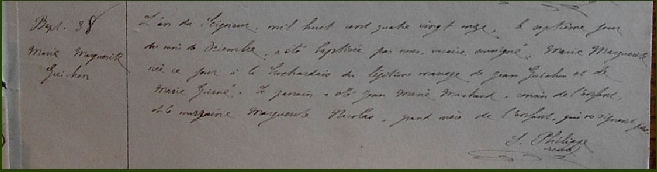 Bapt. 38
Marie Marguerite
Guichon
L'an du Seigneur, mil huit cent quatre vingt onze, le septième jour
du mois de Décembre, a été baptisée par nous, vicaire soussigné, Marie Marguerite
née ce jour à la du légitime mariage de Jean Guichon et de
Marie . Le parrain a été Jean Marie , de l'enfant,
et la marraine Marguerite Nicolas, grand de l'enfant, qui
J. Philippe